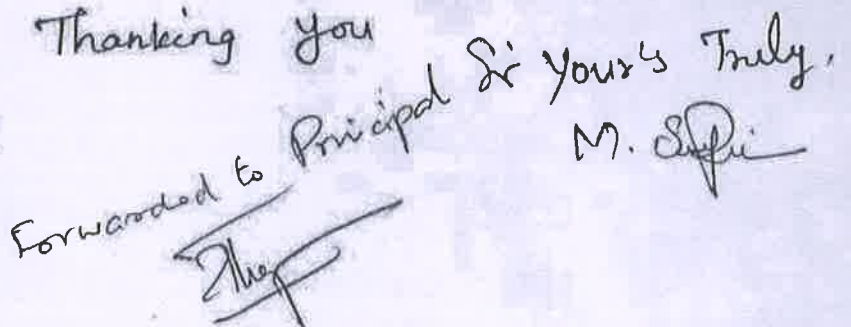 Thanking You
Your's Truly,
M.
Forwarded to Principal Sir